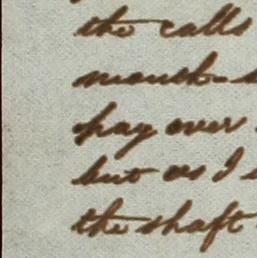 the calls
month
pay over
but as I
the shaft